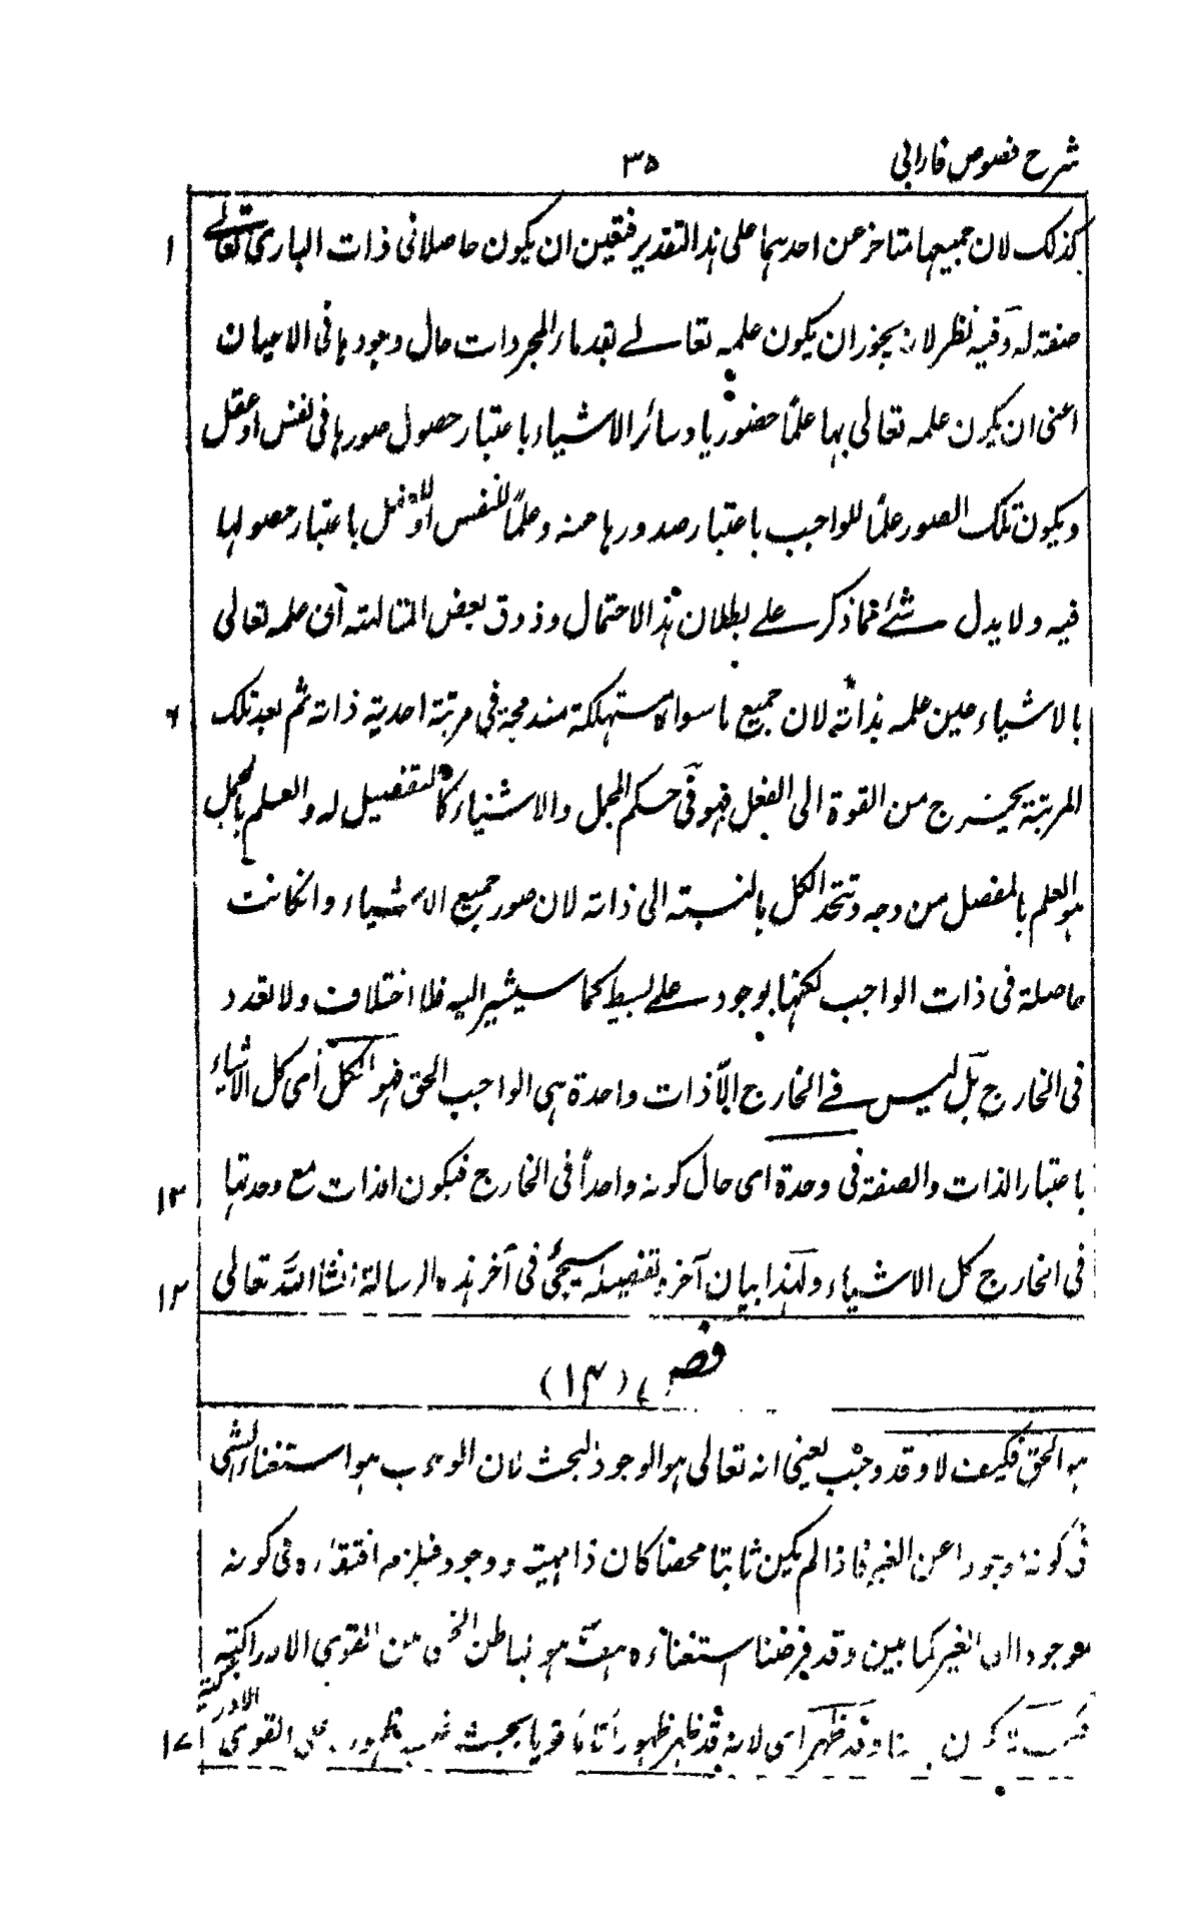 شرح فصوص فارابی
۳۵
کذلک لان جمیعها متاخر عن احدهما علی هذا التقدیر فتعین ان یکون حاصلا فی ذات الباری تعالے
۱
صفة له وفیه نظر لانه یجوز ان یکون علمه تعالے بعد ما المجردات حال وجودها فی الاعیان
اعنی ان یکون علمه تعالی بها علمًا حضوریا وسائر الاشیاء باعتبار حصول صورها فی نفس او عقل
ویکون تلک الصور علمًا للواجب باعتبار صدورها منه وعلمًا للنفس او باعتبار حصولها
فیه ولا یدل شئ مما ذکر علے بطلان هذا الاحتمال وذوق بعض المتالهة ان علمه تعالی
بالاشیاء عین علمه بذاته لان جمیع ما سواه مستهلکة مندمجة فی مرتبة احدیة ذاته ثم بعد تلک
۶
المرتبة یخرج من القوة الی الفعل فهو فی حکم المجمل والاشیاء کالتفصیل له والعلم بالمجمل
هو العلم بالمفصل من وجه وتتحد الکل بالنسبة الی ذاته لان صور جمیع الاشیاء وانکانت
حاصلة فی ذات الواجب لکنها بوجود علے بسیط کما سیشیر الیه فلا اختلاف ولا تعدد
فی الخارج بل لیس فے الخارج الّا ذات واحدة هی الواجب الحق فهو الکل أی کل الاشیاء
باعتبار الذات والصفة فی وحدة ای حال کونه واحداً فی الخارج فیکون الذات مع وحدتها
۱۲
فی الخارج کل الاشیاء ولهذا بیان آخر وتفصیله سیجئ فی آخر هذه الرسالة انشاء الله تعالی
۱۳
فص (۱۴)
هو الحق فکیف لا وقد وجب یعنی انه تعالی هو الوجود البحث فان الوجوب هو استغناء الشی
فی کونه موجودا عن الغیر فاذا لم یکن ثابتا محضا کان ذا مهیة ووجود فیلزمه افتقاره فی کونه
موجودا الی الغیر کما بین وقد فرضنا استغناءه هف هو الباطن الخفی من القوی الادراکیة
وقد ظهر ای لانه قد ظهر ظهوراً تامًا قویا بحیث علی القوی
۱۷